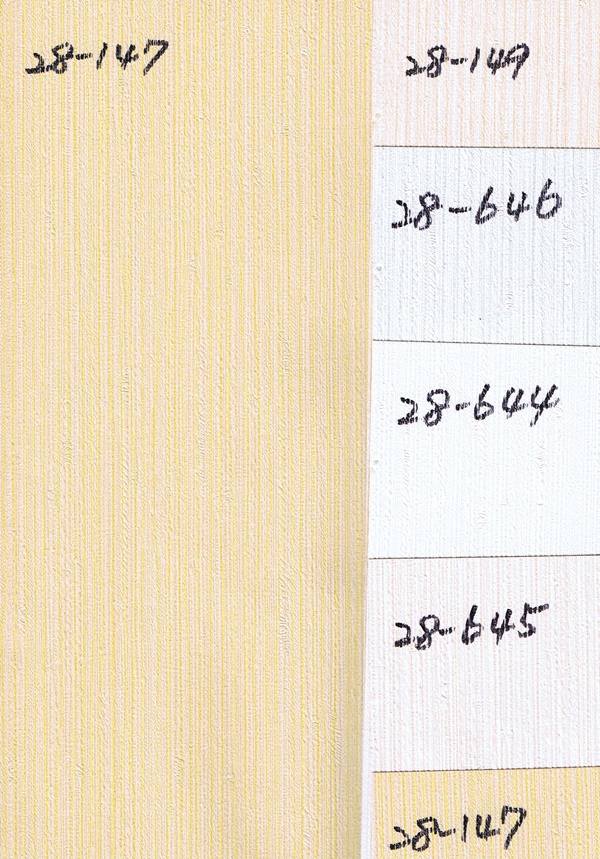 28-147
28-149
28-646
28-644
28-645
28-147